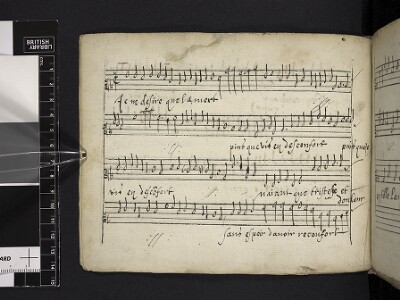 BRITISH
LIBRARY
Je ne desire que la mort
puis que vis en desconfort puis que je
vis en desconfort naiant que tristesse et
douleur
sans espoir davoir reconfort